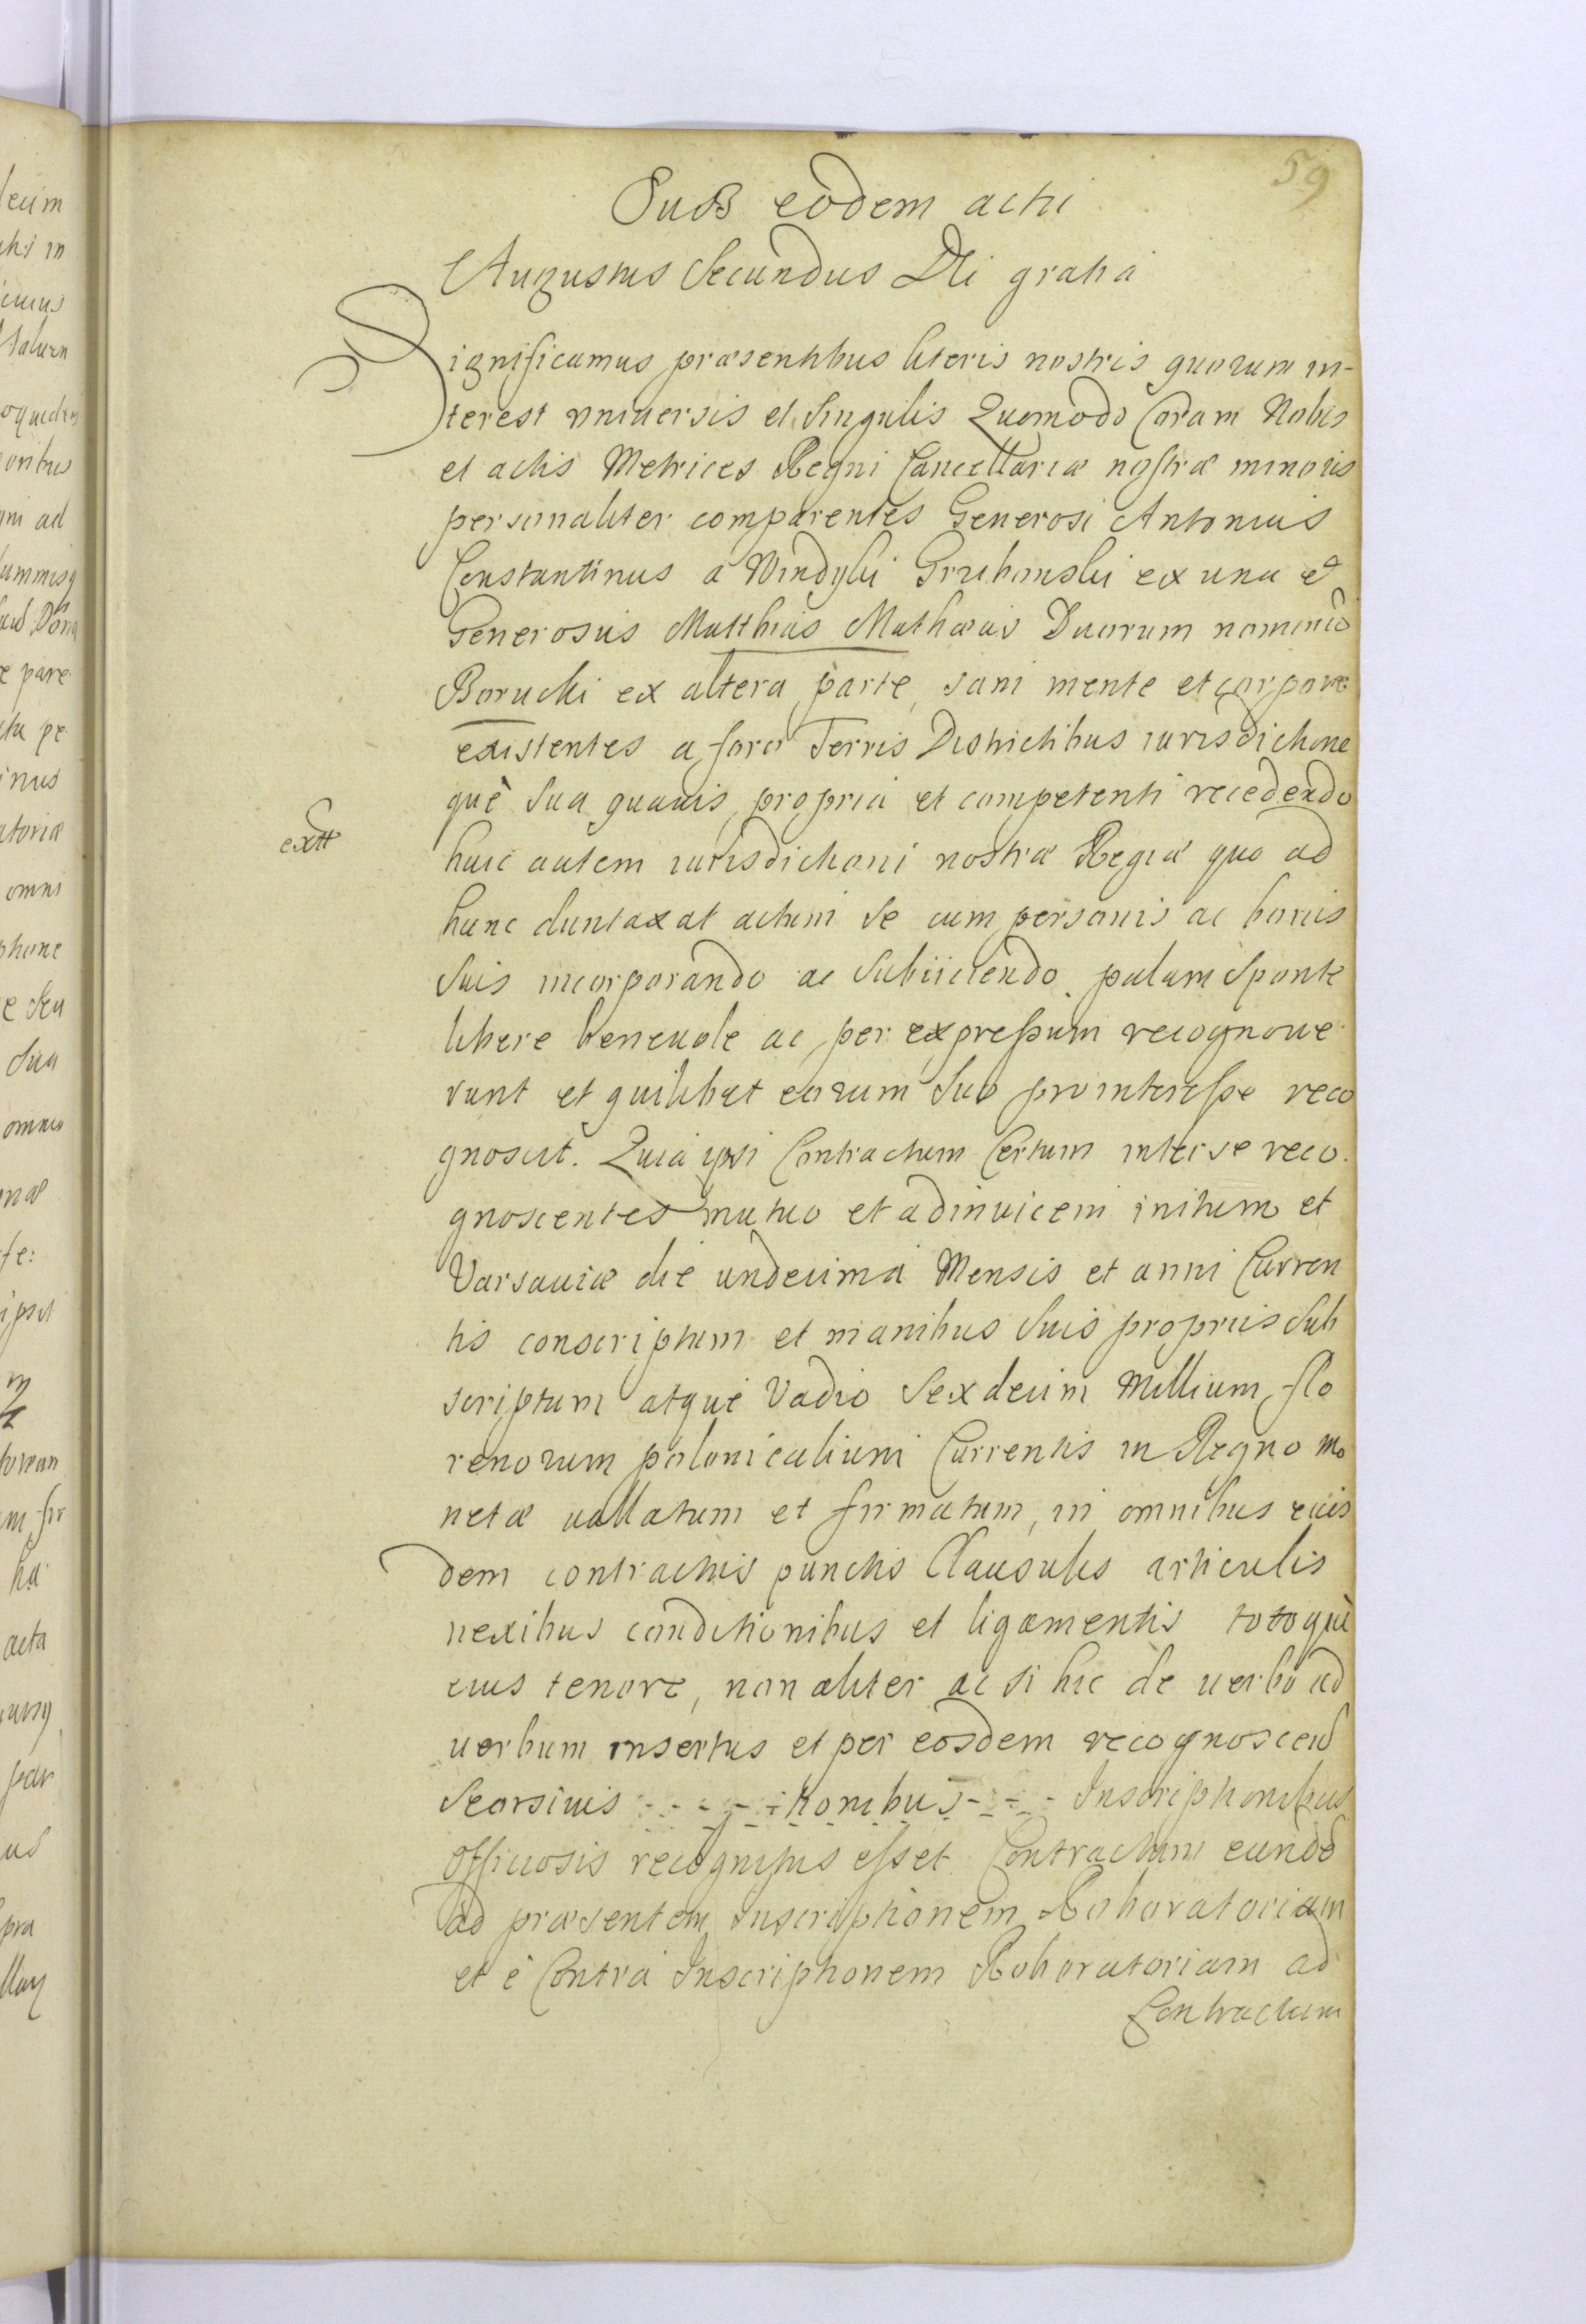 59
Sub eodem actu
Augustus Secundus Dei gratia
Significamus præsentibus literis nostris quorum in-
terest vniuersis et singulis Quomodo Coram Nobis
et actis Metrices Regni Cancellariæ nostræ minoris
personaliter comparentes Generosi Antonius
Constantinus a Windyki Grzibowski ex una et
Generosus Matthias Mathæus Duorum nominũ
Borucki ex altera parte, sani mente et corpore
existentes a foro Terris Districtibus iurisdictione
què sua quauis propria et competenti recedendo
extt
huic autem iurisdictioni nostræ Regiæ quo ad
hunc duntaxat actum se cum personis ac bonis
suis incorporando ac subiiciendo palam sponte
libere beneuole ac per expressum recognoue
runt et quilibet eorum suo pro interesse reco
gnoscit. Quia ipsi Contractum Certum inter se reco
gnoscentes mutuo et adinuicem initum et
Varsauiæ die undecima Mensis et anni Curren
tis conscriptum et manibus suis propriis sub
scriptum atquè Vadio Sexdecim Millium flo
renorum polonicalium Currentis in Regno mo
netæ uallatum et firmatum, in omnibus eius
dem contractus punctis Clausulis articulis
nexibus conditionibus et ligamentis totoquè
eius tenore, non aliter ac si hic de uerbo ad
uerbum insertus et per eosdem recognoscen
Seorsiuis - - - - tionibus - - - Inscriptionibus
officiosis recognitus esset Contractum eundẽ
ad præsentem Inscriptionem Roboratoriam
et è Contra Inscriptionem Roboratoriam ad
Contractum